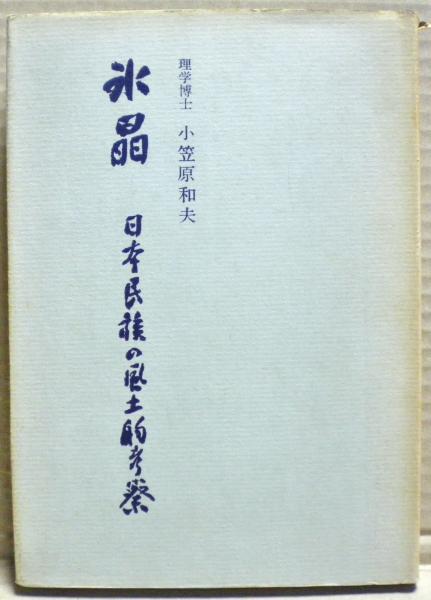 理学博士 小笠原和夫
氷晶
日本民族の風土的考察